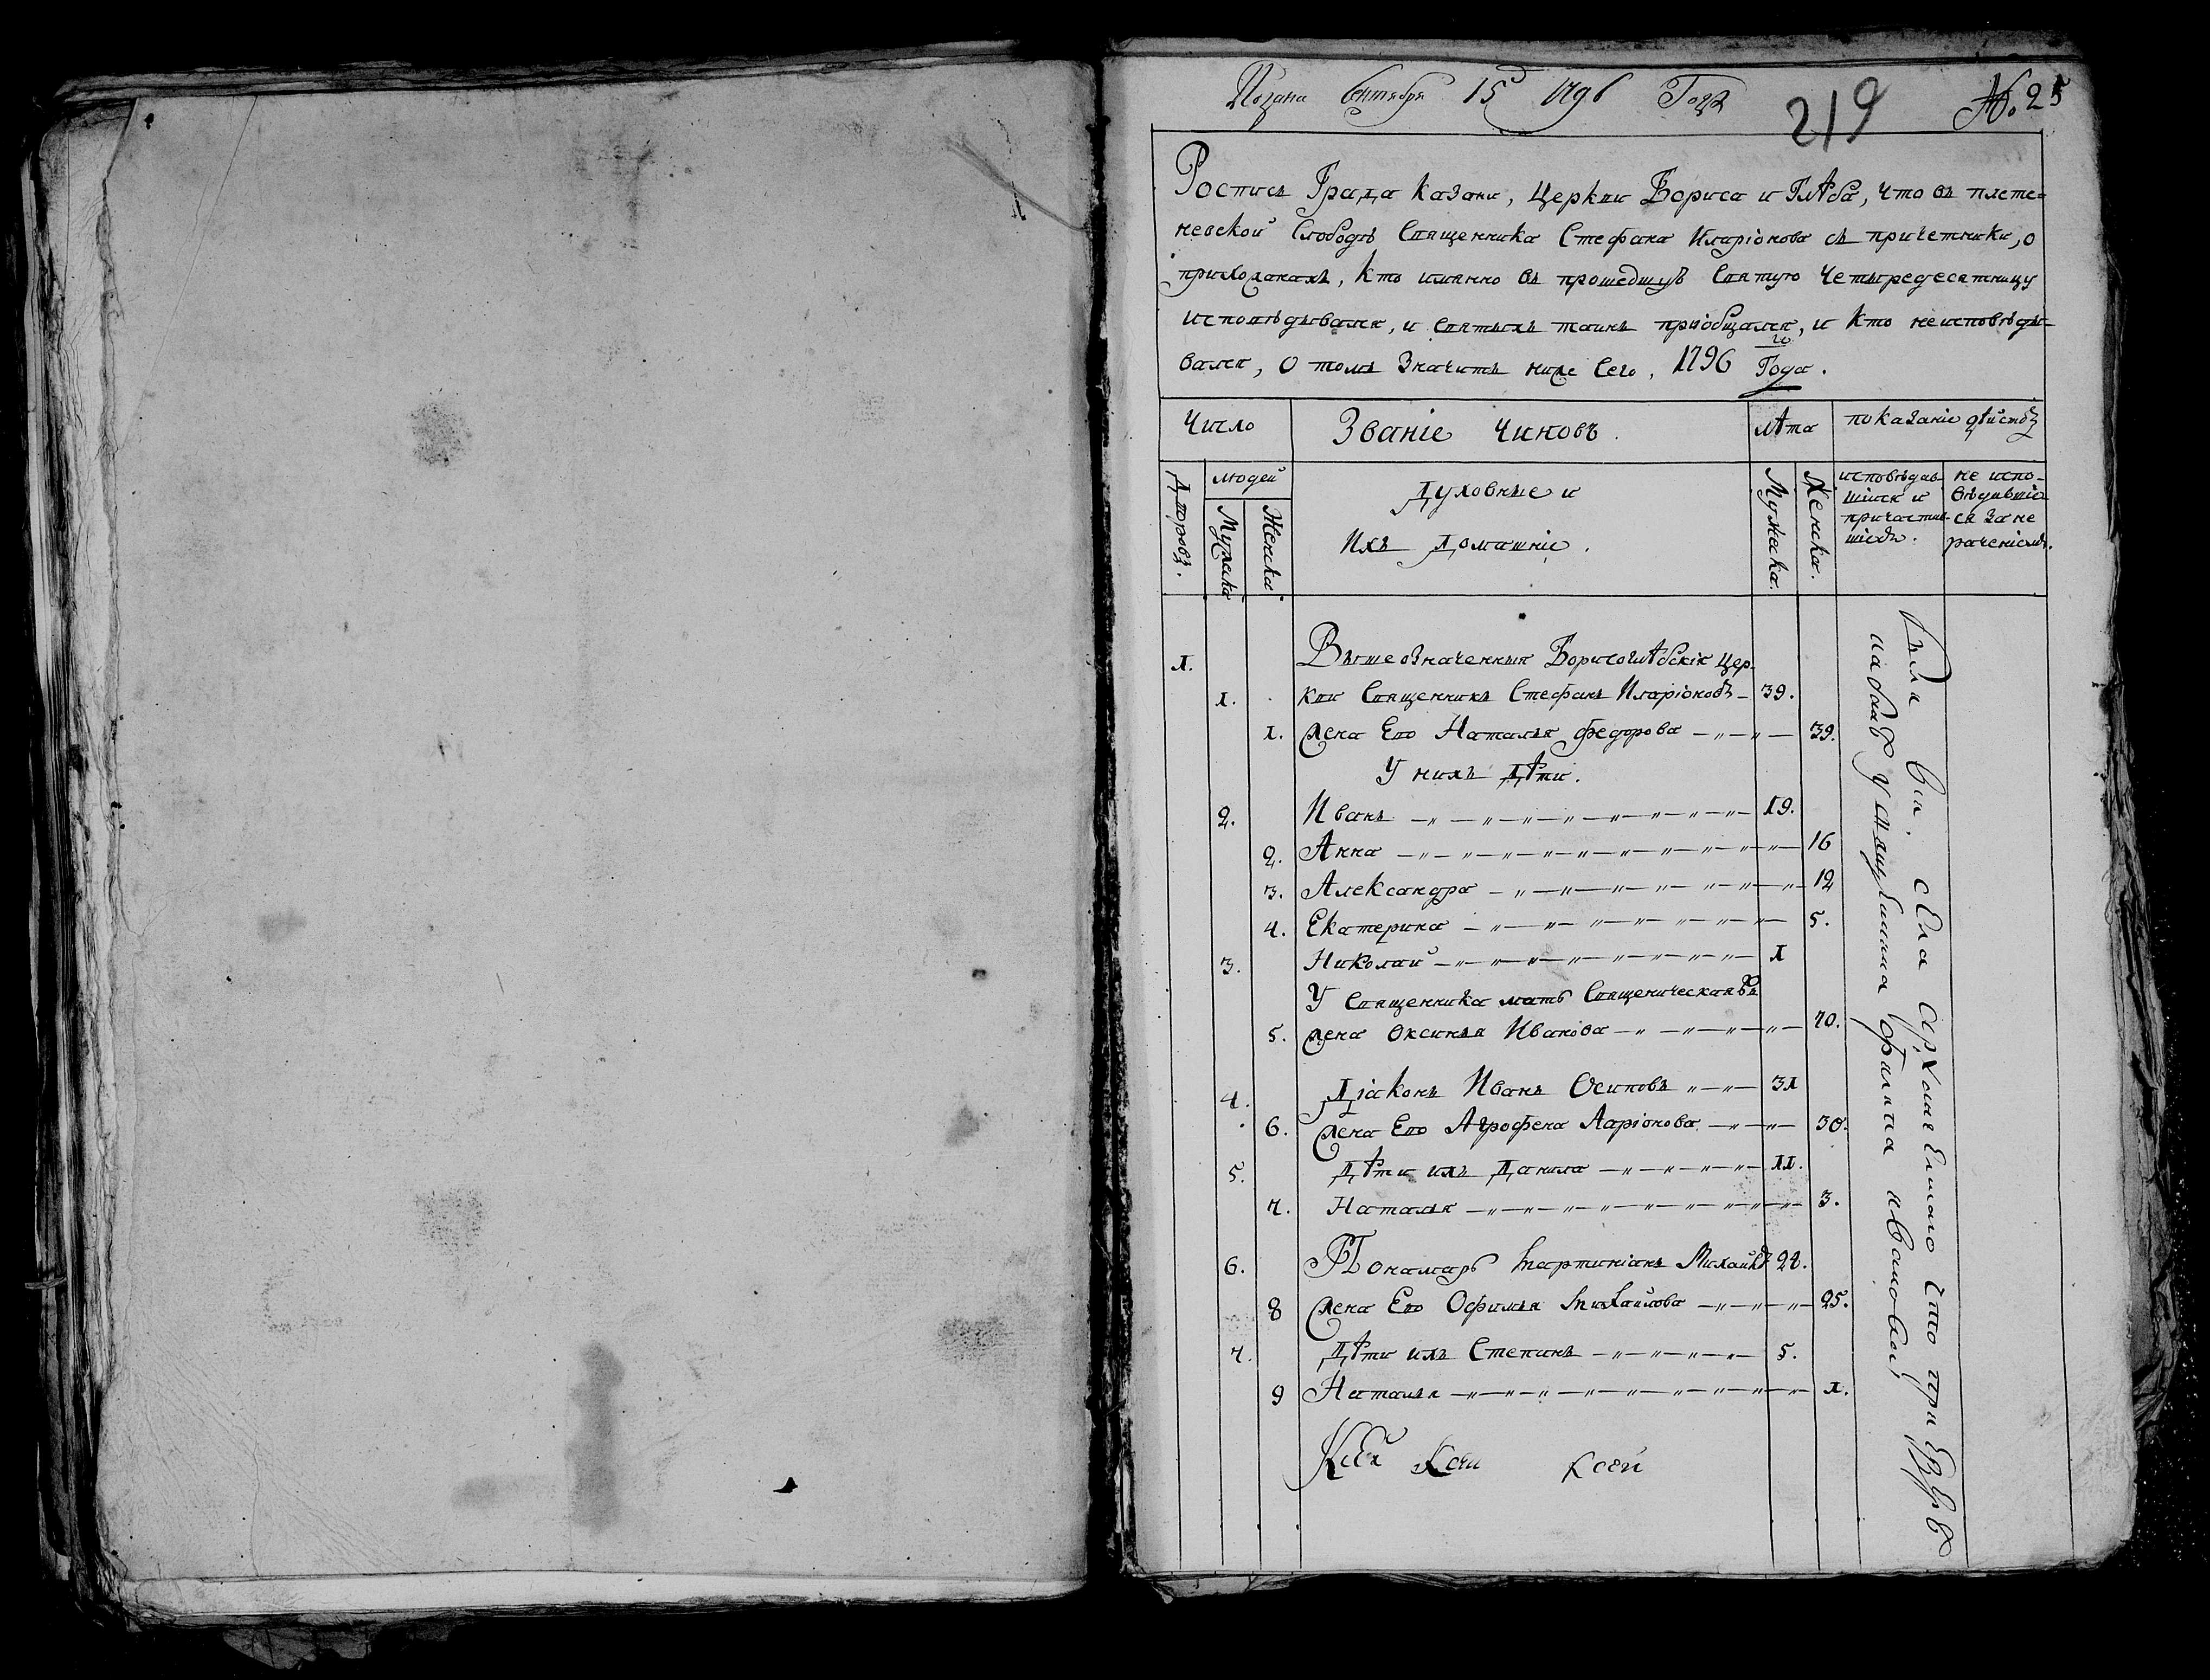 Подана Сентября 15 1796 Года
219 № 25
Роспись Града Казани, Церкви Бориса и Глѣба, что въ плете=
невской Слободѣ Священника Стефана Иларіонова съ причетники, о
прихожанахъ, кто имянно въ прошедшую Святую Четыредесятницу
исповѣдывался, и святыхъ таинъ пріобщался, и кто неисповѣды-
вался, О томъ Значитъ ниже Сего, 1796 го Года.
Число
Званіе чиновъ.
лѣта
показаніе дѣйствъ
Дворовъ.
людей
Мужеска
Женска.
Духовные и
Ихъ Домашніе.
Мужеска.
Женска.
исповѣдав-
шіися и
причастив-
шіеся.
не испо-
вѣдавшіе
ся за не
раченіемъ.
1. Вышеозначенныя Борисоглѣбскія Цер-
1. кви Священникъ Стефанъ Иларіоновъ - 39.
1. жена Его Наталья федорова 39.
У нихъ Дѣти.
2. Иванъ 19.
2. Анна 16
3. Александра 12
4. Екатерина 5.
3. Николай 1
У Священника мать Священическая
5. жена Оксинья Иванова 70.
4. Діаконъ Иванъ Осиповъ 31
6. жена Его Агрофена Ларіонова 30.
5. Дѣти ихъ Данила 11.
7. Наталья 3.
6. Понамарь Мартиніанъ Михайловъ
8 жена Его Офимья Михайлова 25.
7. Дѣти ихъ Степанъ 5.
9 Наталья 1.